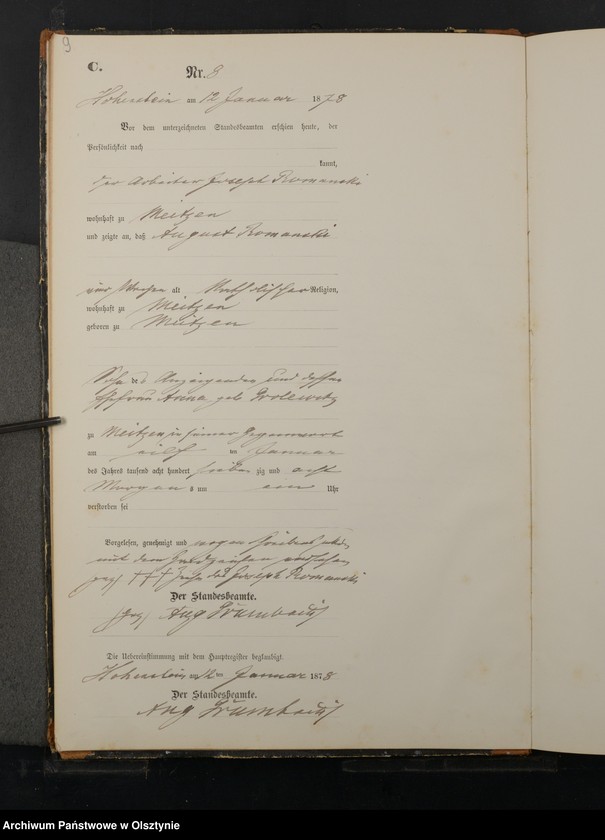 9
C.
Nr. 8
Hohenstein am 12 Januar 1878
Vor dem unterzeichneten Standesbeamten erschien heute, der
Persönlichkeit nach
kannt,
der Arbeiter Joseph Romanski
wohnhaft zu Meitzen
und zeigte an, daß August Romanski
vier Wochen alt Katholischer Religion,
wohnhaft zu Meitzen
geboren zu Meitzen
Sohn des Anzeigenden und dessen
Ehefrau Anna geb
zu Meitzen in seiner Gegenwart
am eilf ten Januar
des Jahres tausend acht hundert sieben zig und acht
Morgens um ein Uhr
verstorben sei
Vorgelesen, genehmigt und wegen
mit dem Handzeichen versehen
gez) +++ des Joseph Romanski
Der Standesbeamte.
gez) Aug
Die Uebereinstimmung mit dem Hauptregister beglaubigt.
Hohenstein am 12 Januar 1878
Der Standesbeamte.
Aug
Archiwum Państwowe w Olsztynie